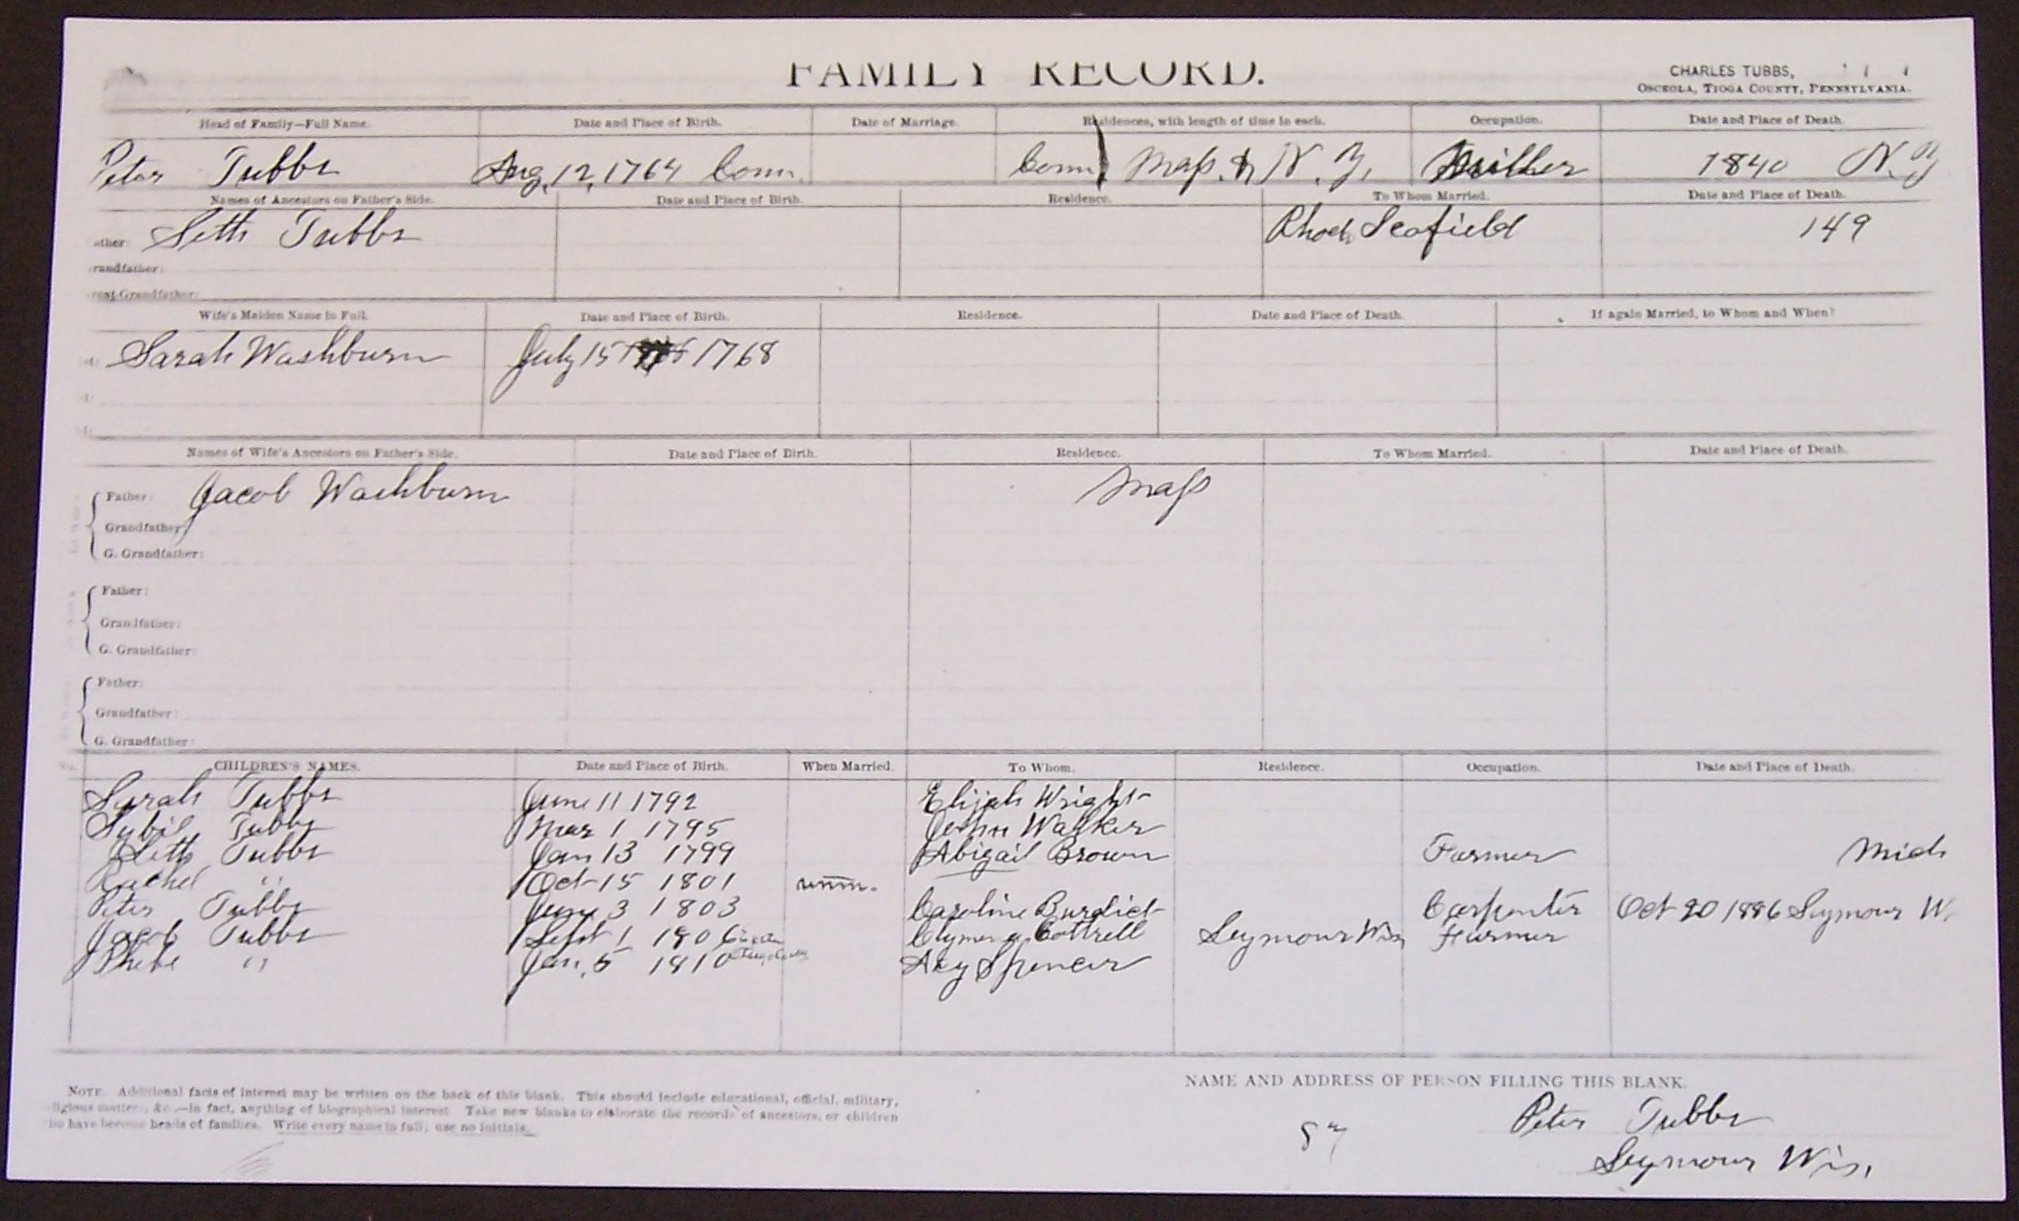 FAMILY RECORD.
CHARLES TUBBS,
OSCEOLA, TIOGA COUNTY, PENNSYLVANIA.
Head of Family—Full Name. Date and Place of Birth. Date of Marriage. Residences, with length of time in each. Occupation. Date and Place of Death.
Peter Tubbs Aug. 12, 1764 Conn. Conn Mass. & N. Y. 1840 N. Y
Names of Ancestors on Father's Side. Date and Place of Birth. Residence. To Whom Married. Date and Place of Death.
ather: Seth Tubbs Scofield 149
randfather:
reat-Grandfather:
Wife's Maiden Name in Full. Date and Place of Birth. Residence. Date and Place of Death. If again Married, to Whom and When?
Sarah Washburn July 15 1768
Names of Wife's Ancestors on Father's Side. Date and Place of Birth. Residence. To Whom Married. Date and Place of Death.
Father: Jacob Washburn Mass
Grandfather:
G. Grandfather:
Father:
Grandfather:
G. Grandfather:
Father:
Grandfather:
G. Grandfather:
No. CHILDREN'S NAMES. Date and Place of Birth. When Married. To Whom. Residence. Occupation. Date and Place of Death.
Sarah Tubbs June 11 1792 Elijah Wright
Sybil Tubbs Mar 1 1795 John Walker
Seth Tubbs Jan 13 1799 Abigail Brown Farmer Mich
Rachel " Oct 15 1801 unm.
Peter Tubbs June 3 1803 Caroline Burdict Carpenter Oct 20 1886 Seymour W.
Jacob Tubbs Sept 1 1806 Cottrell Seymour Wis Farmer
Phebe " Jan. 5 1810 Spencer
NOTE Additional facts of interest may be written on the back of this blank. This should include educational, official, military,
ligious matters, &c.—in fact, anything of biographical interest. Take new blanks to elaborate the records of ancestors, or children
ho have become heads of families. Write every name in full; use no initials.
NAME AND ADDRESS OF PERSON FILLING THIS BLANK.
Peter Tubbs
57
Seymour Wis.